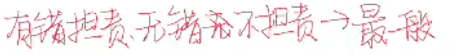 有错担责、无错不担责→最一般